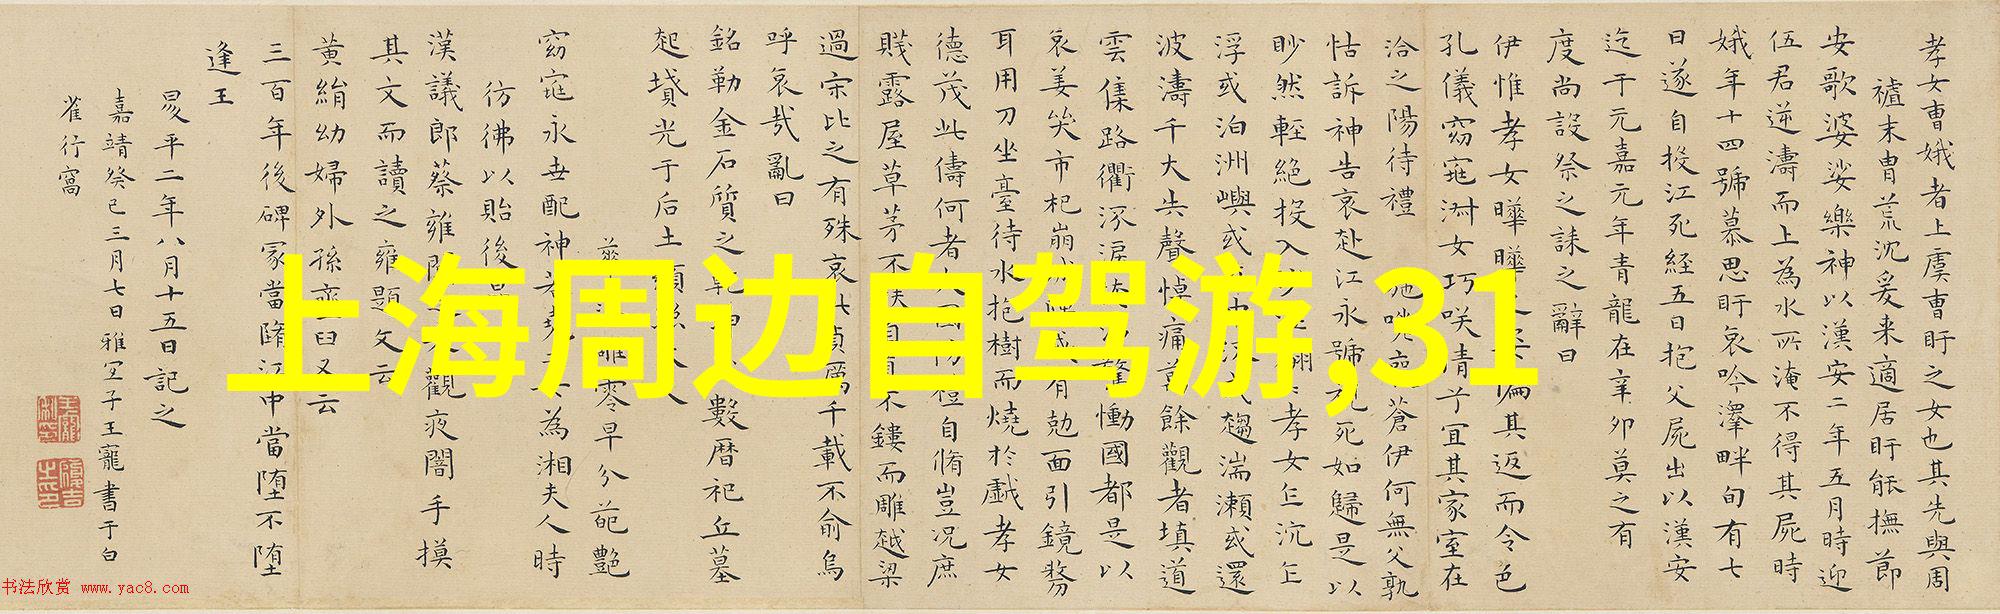 孝女曹娥者上虞曹盱之女也其先與周
末胄荒沈爰来適居盱能撫節
安歌婆娑樂神以漢安二年五月時迎
伍君逆濤而上為水所淹不得其屍時
娥年十四號慕思盱哀吟澤畔旬有七
日遂自投江死経五日抱父屍出以漢安
迄于元嘉元年青龍在辛卯莫之有
度尚設祭之誄之辭曰
伊惟孝女曄曄偏其返而令色
孔儀窈窕淑女巧咲倩兮宜其家室在
洽之陽待禮施嗟喪蒼伊何無父孰
怙訴神告哀赴江永號視死如歸是以
眇然輕絶投入沙泥翩〻孝女乍沉乍
浮或泊洲嶼或中流或趨湍瀬或還
波濤千夫失聲悼痛萬餘觀者填道
雲集路衢淚驚慟國都是以
哀姜哭市杞崩城有尅面引鏡剺
耳用刀坐臺待水抱樹而燒於戯孝女
德茂此儔何者大國防禮自脩豈况庶
賤露屋草茅不扶自直不鏤而雕越梁
過宋比之有殊哀此貞厲千載不渝烏
呼哀哉亂曰
銘勒金石質之乾坤數暦祀丘墓
起墳光于后土顯夫人
零早分葩艷
窈窕永世配神若堯二女為湘夫人時
彷彿以貽後昆
漢議郎蔡雍聞之来觀夜闇手摸
其文而讀之雍題文云
黄絹幼婦外孫虀臼又云
三百年後碑冢當墮江中當堕不堕
逢王
昜平二年八月十五日記之
嘉靖癸巳三月七日雅宜子王寵書于白
雀行窩
上海周边自驾游,31
书法欣赏 www.yac8.com